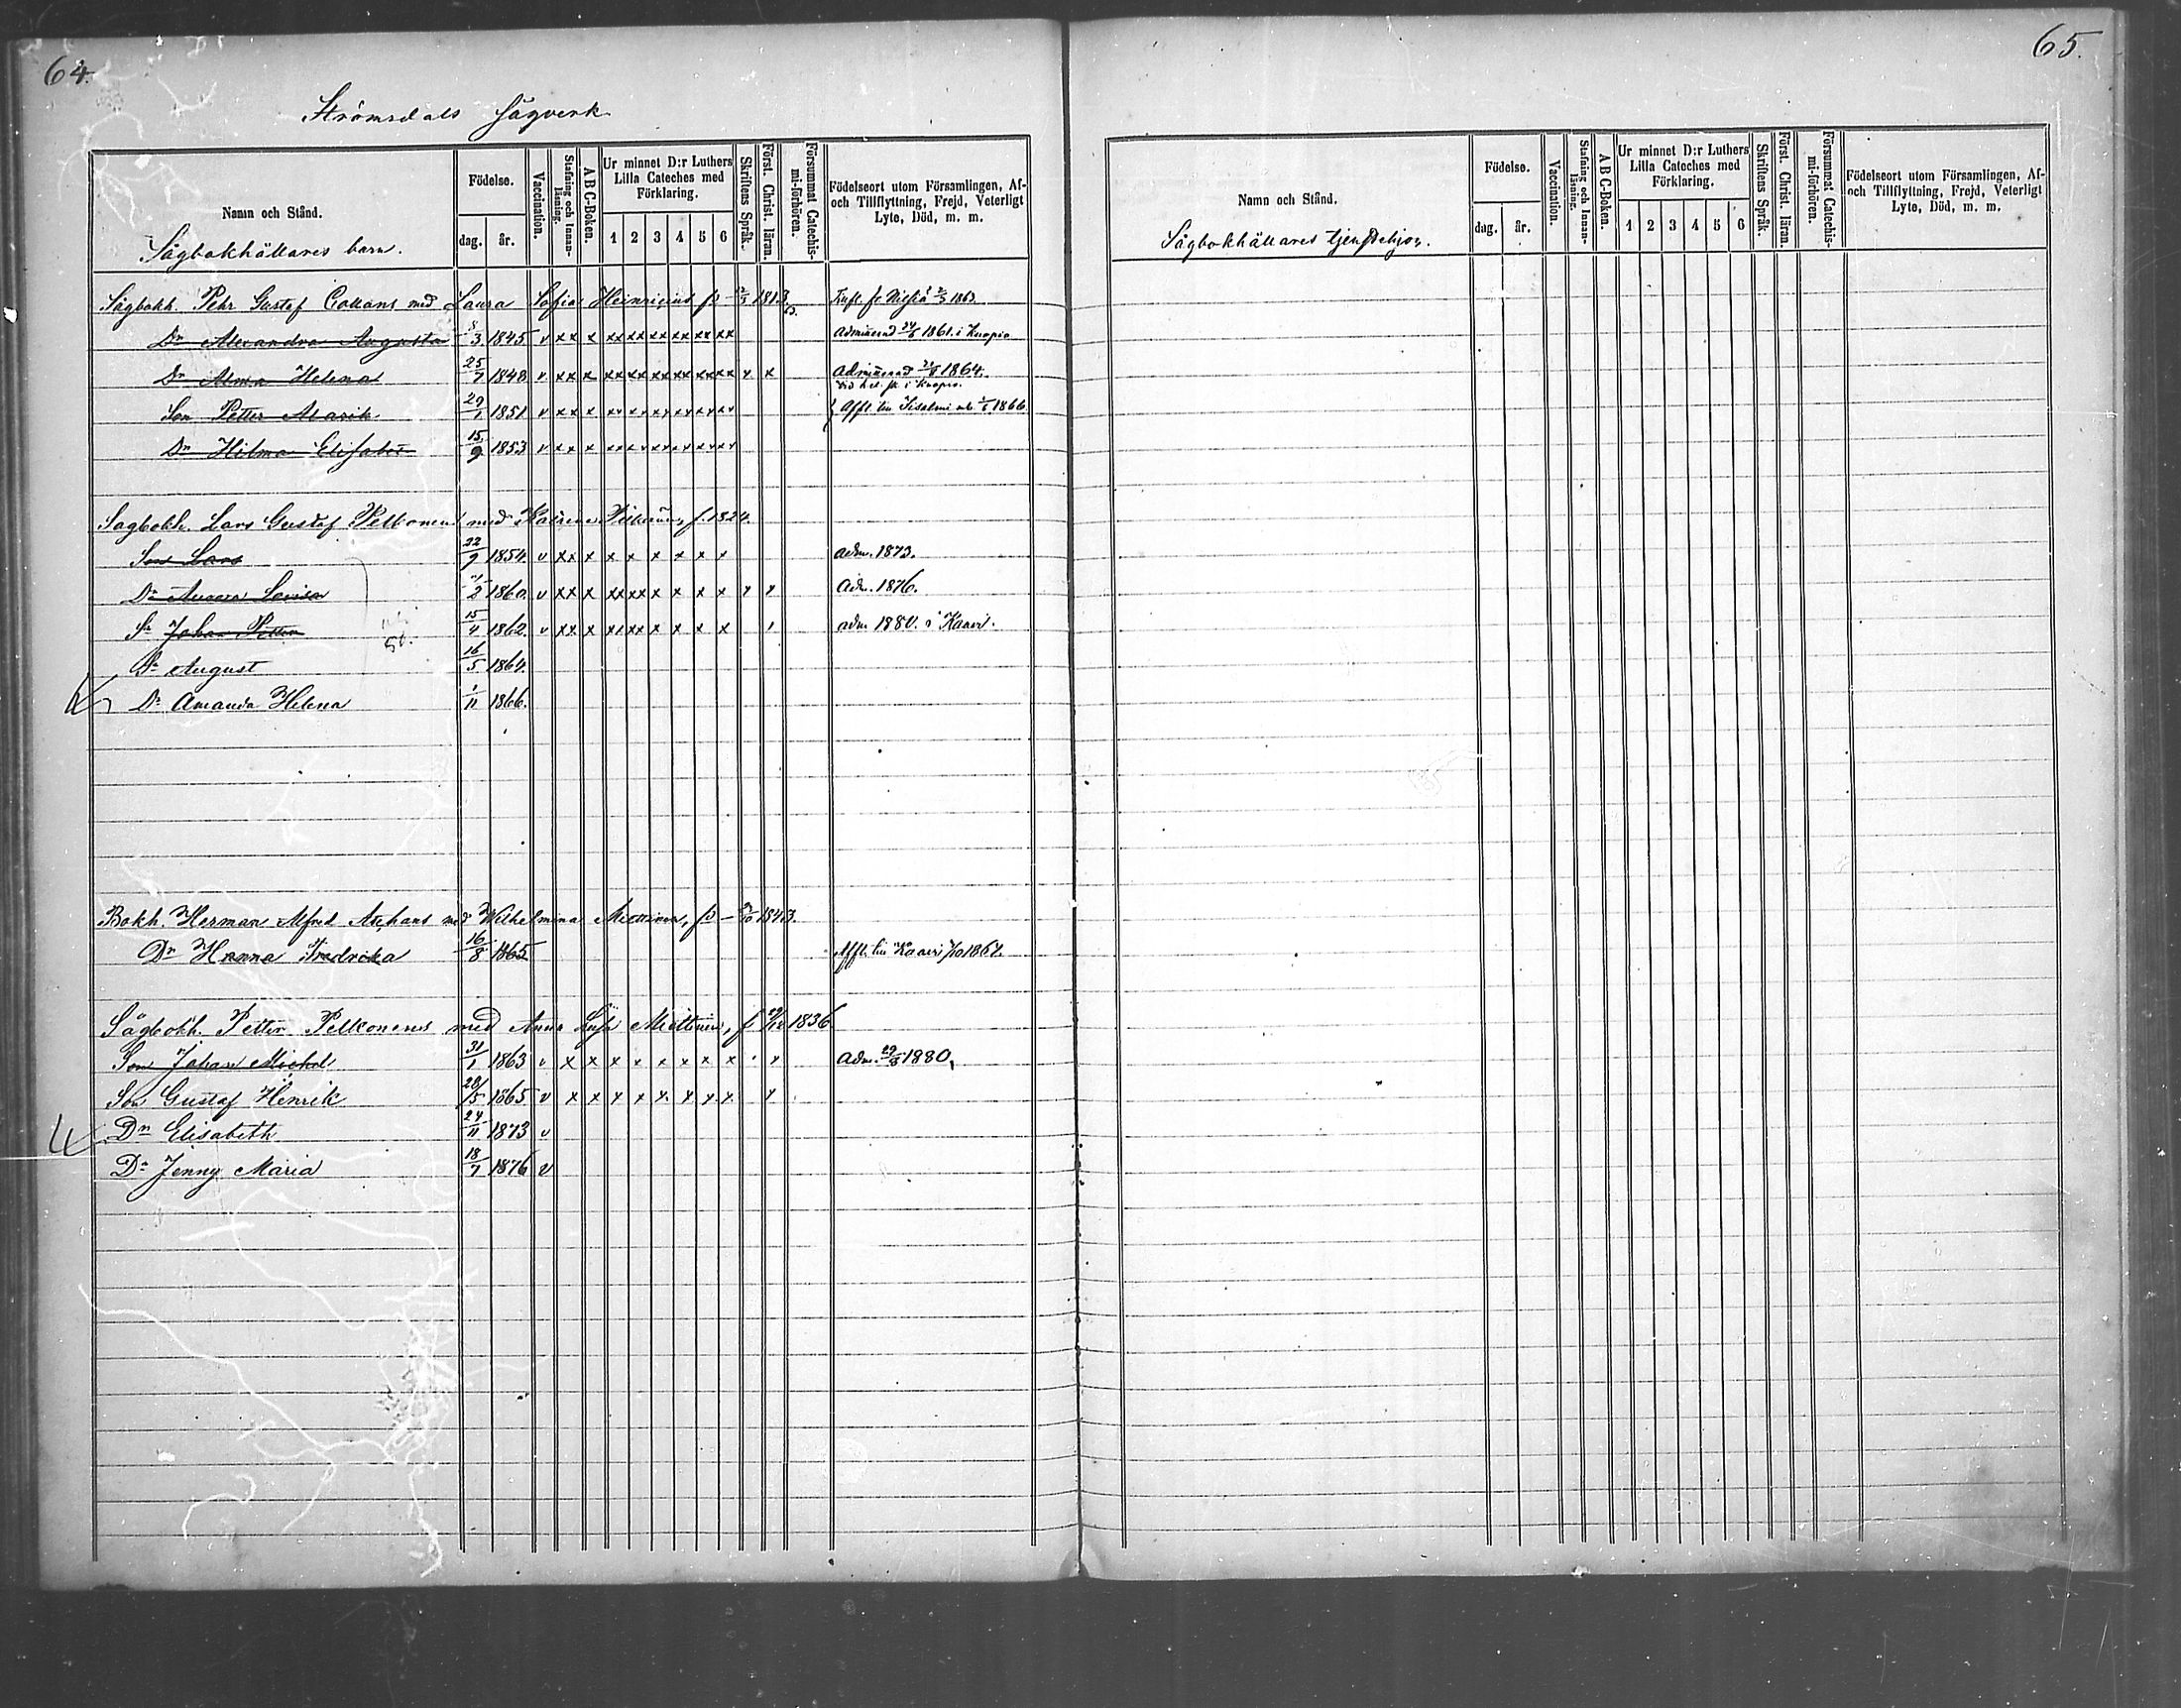 64.
Strömsdals Sågverk
Namn och Stånd.
Sågbokhållares barn.
Födelse.
dag. år.
Vaccination.
Stafning och Innan-läsning.
A B C-Boken.
Ur minnet D:r Luthers Lilla Cateches med Förklaring.
1 2 3 4 5 6
Skriftens Språk.
Först. Christ. läran.
Försummat Catechis-mi-förhören.
Födelseort utom Församlingen, Af- och Tillflyttning, Frejd, Veterligt Lyte, Död, m. m.
Sågbokh. Pehr Gustaf Collans med Laura Sofia Heinricius 1813. Infl. fr Nilsiä 1863.
Dr Alexandra Augusta 8/3 1845 v xx x xx xx xx xx xx xx Admitterad 1861. i Kuopio
Dr Alma Helena 25/7 1848 v xx x xx xx xx xx xx xx x x Admitterad 1864.
i Kuopio.
Son Petter Alarik 29/1 1851 v xx x xx xx xx xx xx xx Afft. till Iisalmi 1866
Dr Hilma Elisabet 15/9 1853 v xx x xx xx xx xx xx xx
Sågbokh. Lars Gustaf Pelkonens med f. 1824.
Son Lars 22/9 1854. v xx x x x x x x x adm. 1873.
Dr Aurora Lovisa 2 1860. v xx x xx xx x x x x x x Adm. 1876.
Sn Johan Petter 15/4 1862. v xx x xx xx x x x x adm 1880. i Kaavi.
Sn August 16/5 1864.
Dr Amanda Helena 1/11 1866.
Bokh. Herman Alfred med Wilhelmina Miettinen, 1843.
Dr Hanna Fredrika 16/8 1865 Afft. till Kaavi 1867.
Sågbokh. Petter Pelkonens med Anna Miettinen, f 1836
Son Johan Michel 31/1 1863 v x x x x x x x x x Adm. 1880,
Son Gustaf Henrik 28/5 1865 v x x x x x x x x x
Dr Elisabeth 24/11 1873 v
Dr Jenny Maria 18/7 1876 v
65.
Namn och Stånd.
Sågbokhållares tjenstehjon.
Födelse.
dag. år.
Vaccination.
Stafning och Innan-läsning.
A B C-Boken.
Ur minnet D:r Luthers Lilla Cateches med Förklaring.
1 2 3 4 5 6
Skriftens Språk.
Först. Christ. läran.
Försummat Catechis-mi-förhören.
Födelseort utom Församlingen, Af- och Tillflyttning, Frejd, Veterligt Lyte, Död, m. m.